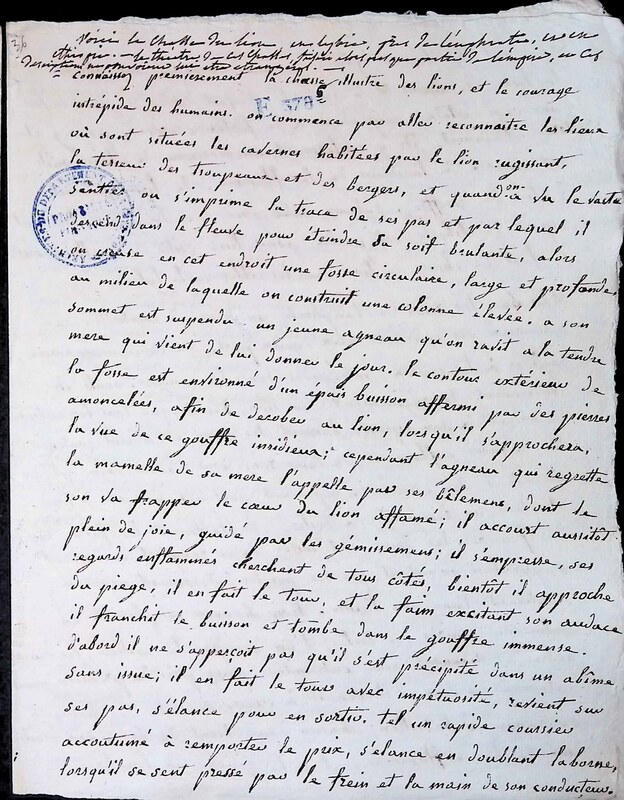 Voici la chasse du lion, en lybie, près de l'euphrate, et en
éthiopie. le théâtre de ces chasses n'étoit alors pas que partie de l'empire, et ces
descriptions ne pouvoient lui être étrangères.
connaissez premièrement la chasse illustre des lions, et le courage
6
intrépide des humains. on commence par aller reconnaitre les lieux
F 378
où sont situées les cavernes habitées par le lion rugissant,
la terreur des troupeaux et des bergers, et quand on a vu le vaste
sentier où s'imprime la trace de ses pas et par lequel il
descend dans le fleuve pour éteindre sa soif brulante, alors
on creuse en cet endroit une fosse circulaire, large et profonde,
au milieu de laquelle on construit une colonne élevée. a son
sommet est suspendu un jeune agneau qu'on ravit a la tendre
mere qui vient de lui donner le jour. le contour extérieur de
la fosse est environné d'un épais buisson affermi par des pierres
amoncelées, afin de derober au lion, lorsqu'il s'approchera,
la vue de ce gouffre insidieux; cependant l'agneau qui regrette
la mamelle de sa mere l'appelle par ses bêlemens, dont le
son va frapper le cœur du lion affamé; il accourt aussitôt
plein de joie, guidé par les gémissemens; il s'empresse, ses
regards enflammés cherchent de tous côtés, bientôt il approche
du piege, il en fait le tour, et la faim excitant son audace
il franchit le buisson et tombe dans le gouffre immense.
d'abord il ne s'apperçoit pas qu'il s'est précipité dans un abîme
sans issue; il en fait le tour avec impétuosité, revient sur
ses pas, s'élance pour en sortir. tel un rapide coursier
accoutumé à remporter le prix, s'élance en doublant la borne,
lorsqu'il se sent pressé par le frein et la main de son conducteur.